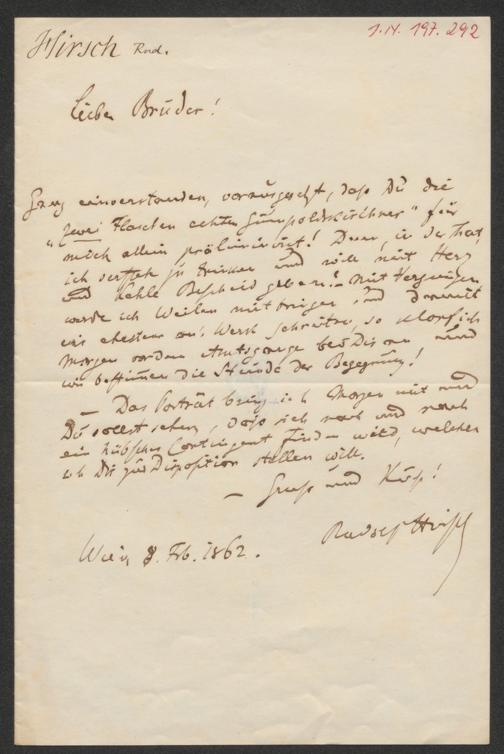 Hirsch Rud.
I.N. 197.292
Lieber Bruder!
Ganz einverstanden, vorausgesetzt, daß Du die
"zwei Flaschen echten Gumpoldskirchner" für
mich allein präliminirst! Denn, in der That,
ich verstehe zu trinken und will mit Herz
und Kehle Bescheid geben! – Mit Vergnügen
werde ich Weilen mitbringen und damit
wir ehestens an's Werk schreiten, so klopf ich
Morgen vor dem Amtsgange bei Dir an und
wir bestimmen die Stunde der Begegnung!
– Das Porträt bring ich Morgen mit und
Du sollst sehen, daß sich nach und nach
ein hübsches Contingent finden wird, welches
ich Dir zur Disposition stellen will.
– Gruß und Kuß!
Rudolf Hirsch
Wien, 8. Feb. 1862.